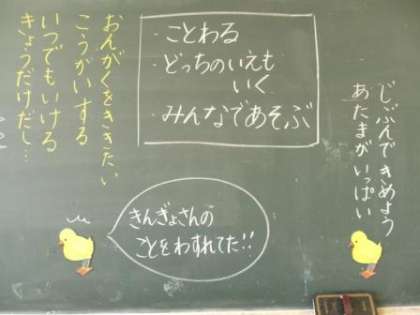 じぶんできめよう
あたまがいっぱい
・ことわる
・どっちのいえも
いく
・みんなであそぶ
きんぎょさんの
ことをわすれてた!!
おんがくをききたい
こうがいする
いつでもいける
きょうだけだし…